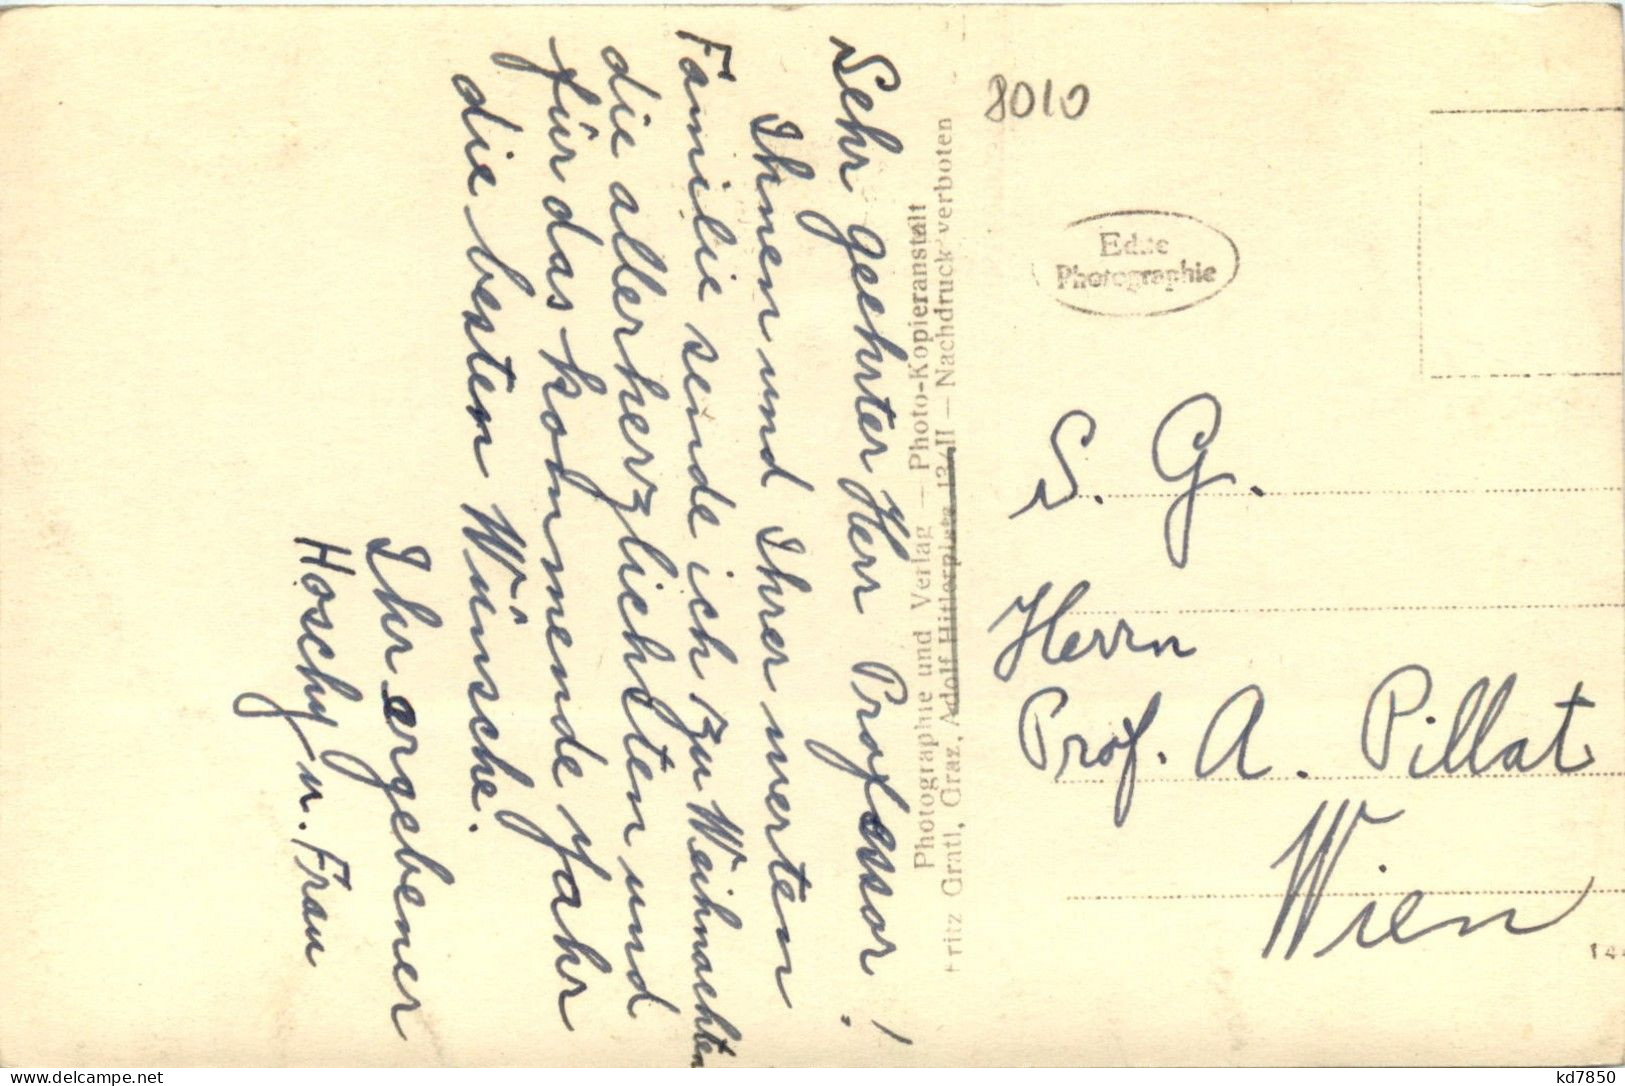 Sehr geehrter Herr Professor!
Ihnen und Ihrer werten
Familie sende ich zu Weihnachten
die allerherzlichsten und
für das kommende Jahr
die besten Wünsche.
Ihr ergebener
Hoschy u. Frau
Photographie und Verlag — Photo-Kopieranstalt
Fritz Gratl, Graz, Adolf Hitlerplatz 13/II — Nachdruck verboten
8010
Echte
Photographie
S. G.
Herrn
Prof. A. Pillat
Wien
kd7850